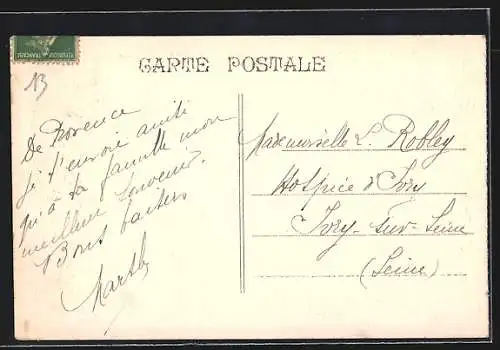 CARTE POSTALE
13
De Provence
je t'envoie ainsi
qu'à ta famille mon
meilleur souvenir.
Bons baisers
Marthe
Mademoiselle L. Robley
Hospice d'Ivry
Ivry-sur-Seine
(Seine)